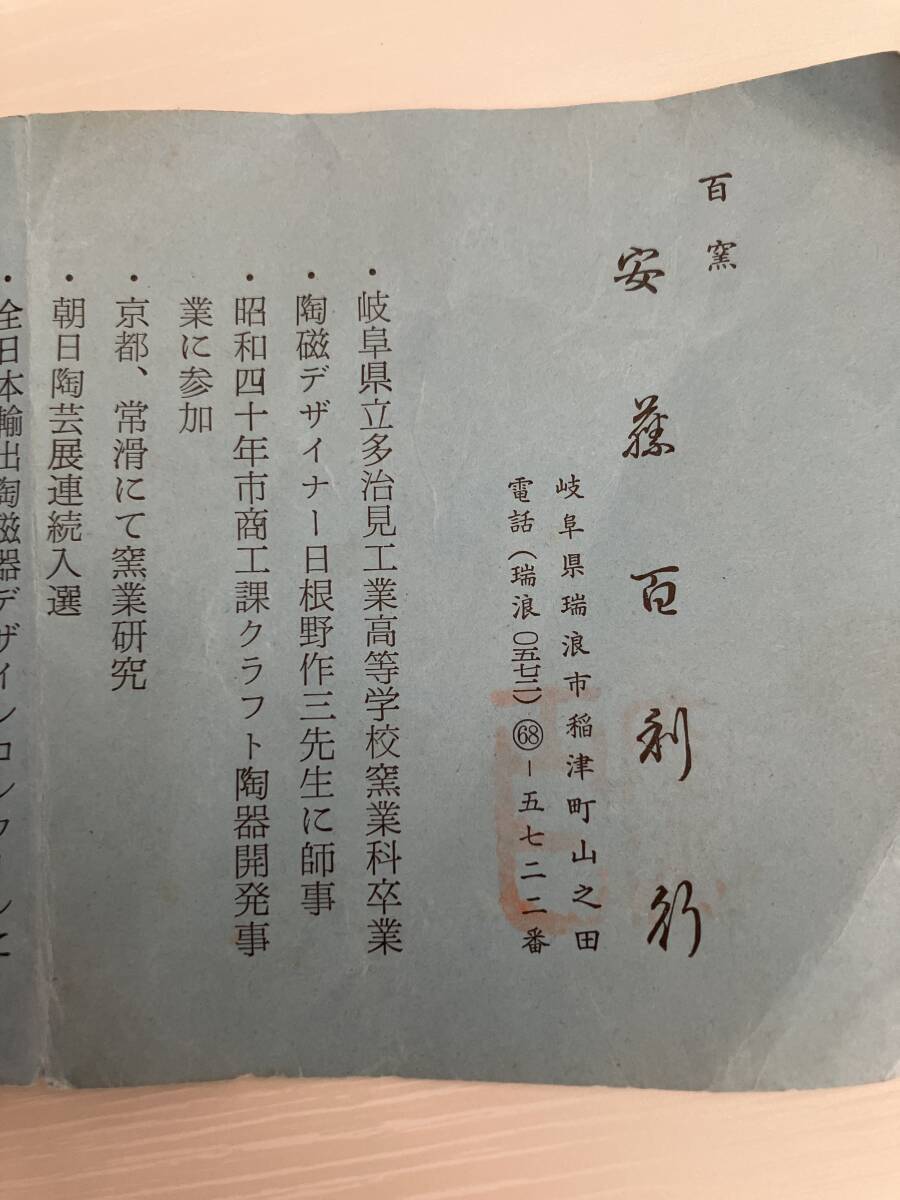 百窯
安藤百利行
岐阜県瑞浪市稲津町山之田
電話(瑞浪〇五七二)68-五七二二番
・岐阜県立多治見工業高等学校窯業科卒業
・陶磁デザイナー日根野作三先生に師事
・昭和四十年市商工課クラフト陶器開発事
業に参加
・京都、常滑にて窯業研究
・朝日陶芸展連続入選
・全日本輸出陶磁器デザインコンクールに